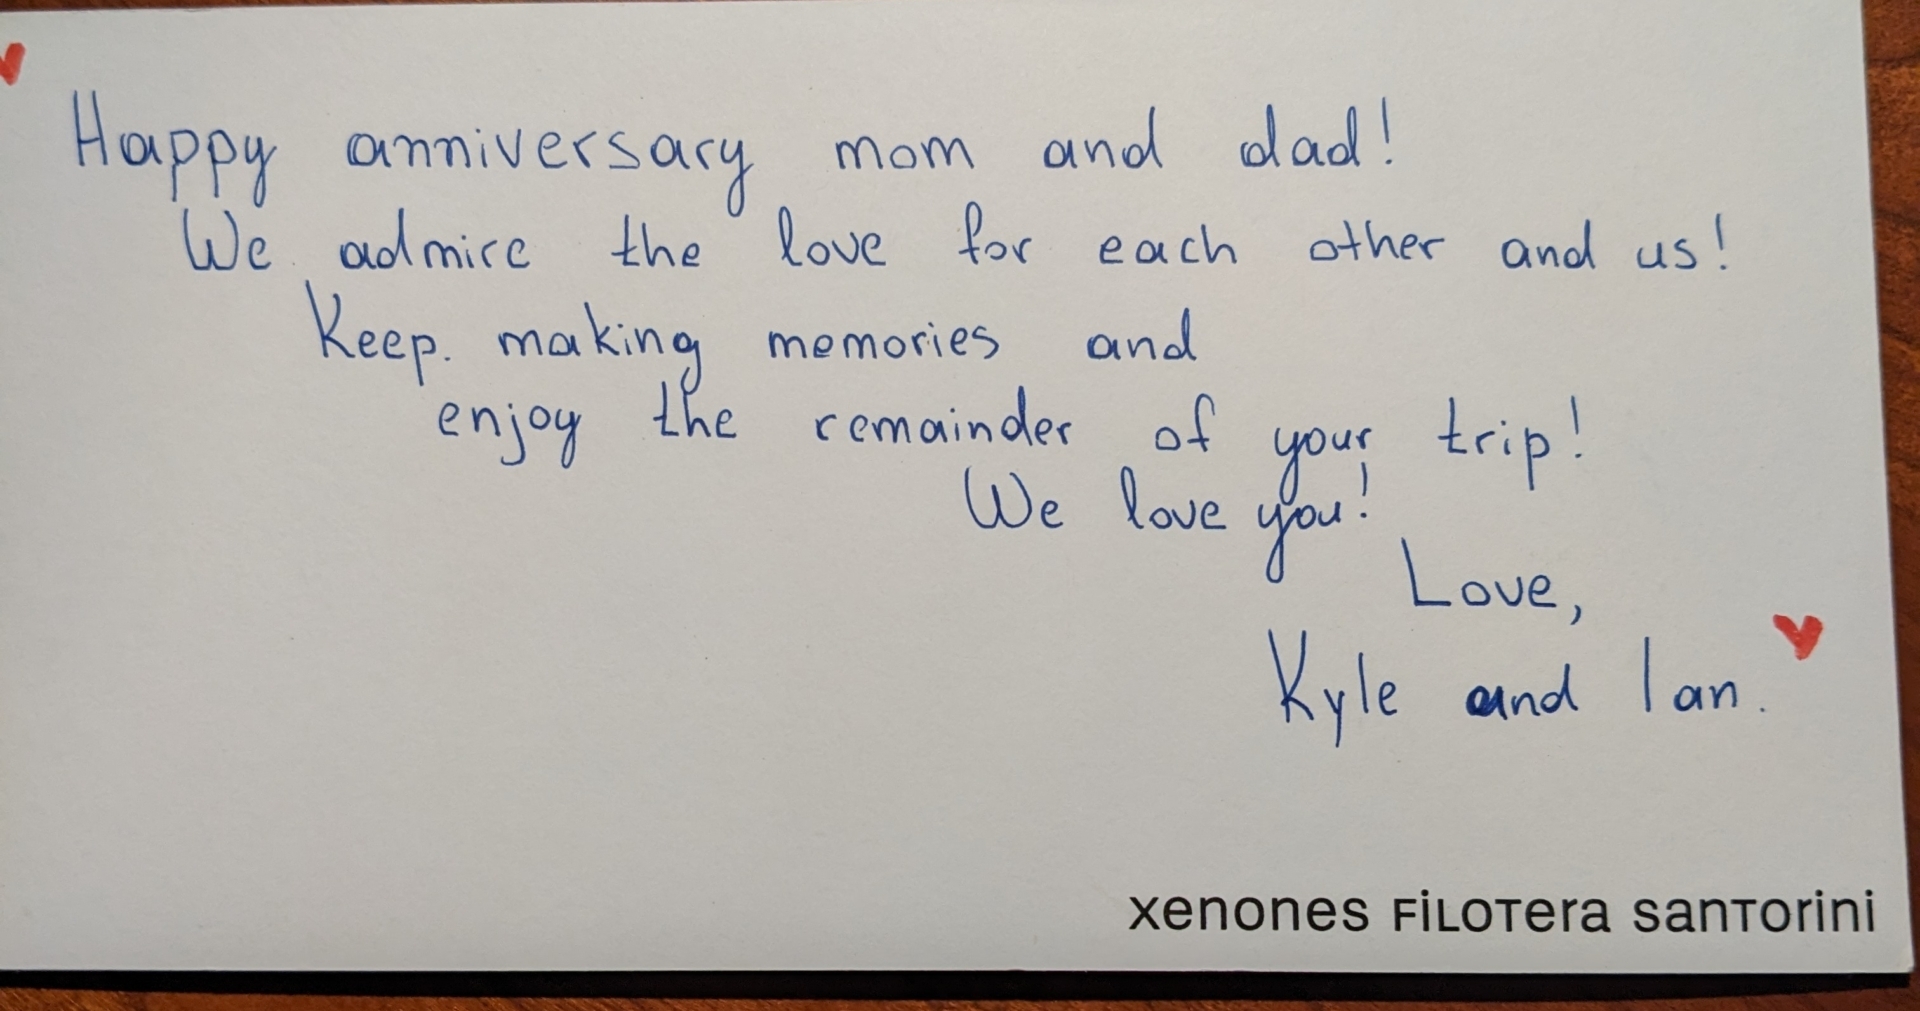 Happy anniversary mom and dad!
We admire the love for each other and us!
Keep. making memories and
enjoy the remainder of your trip!
We love you!
Love,
Kyle and Ian.
xenones FiLOTera sanTorini